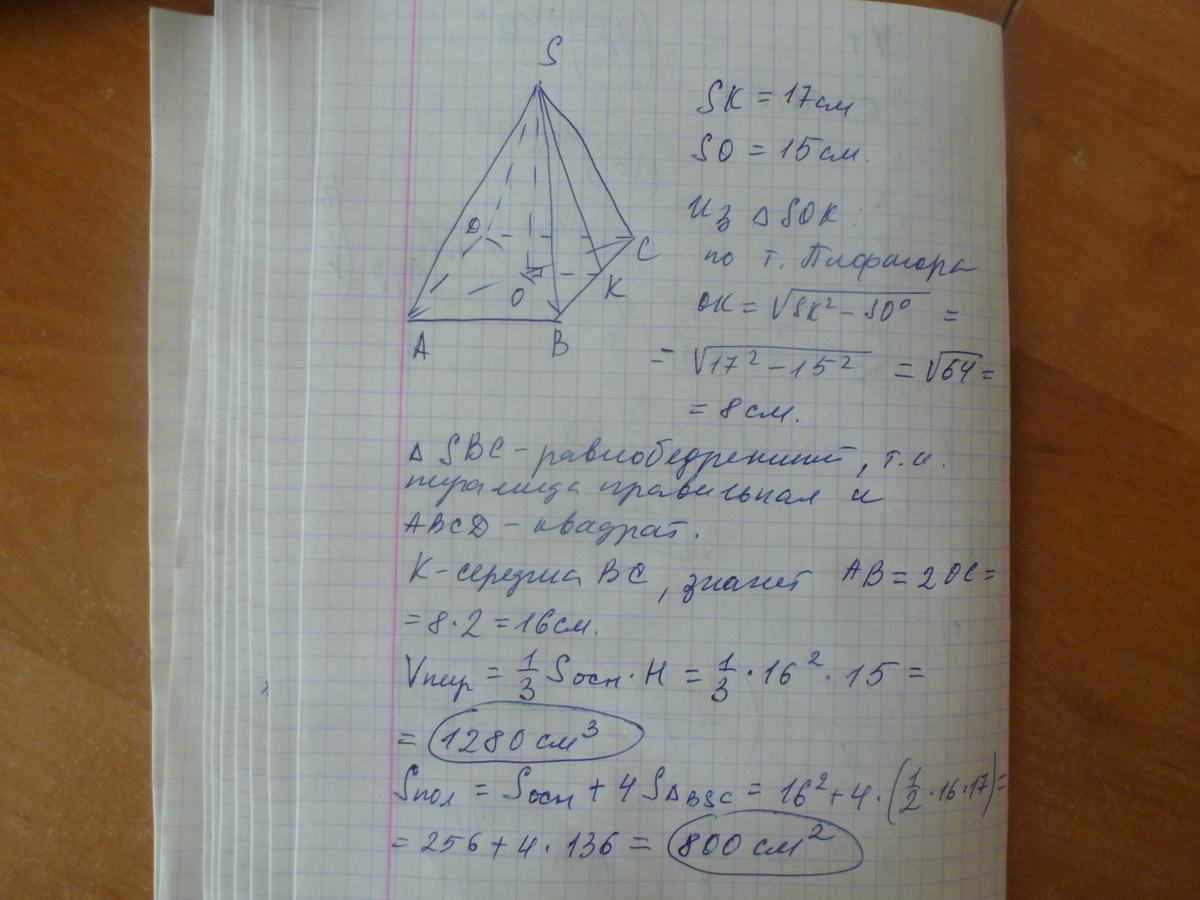 S
SK = 17см
SO = 15см.
Из △ SOK:
по т. Пифагора
OK = √SK² – SO⁰ =
= √17² – 15² = √64 =
= 8 см.
D
C
K
O
A
B
△ SBC – равнобедренный, т.к.
пирамида правильная и
ABCD – квадрат.
K – середина BC, значит AB = 2OC =
= 8·2 = 16см.
Vпир = 1/3 Sосн·H = 1/3·16²·15 =
= 1280 см³
Sпол = Sосн + 4 S△BSC = 16² + 4·(1/2·16·17) =
= 256 + 4·136 = 800 см²